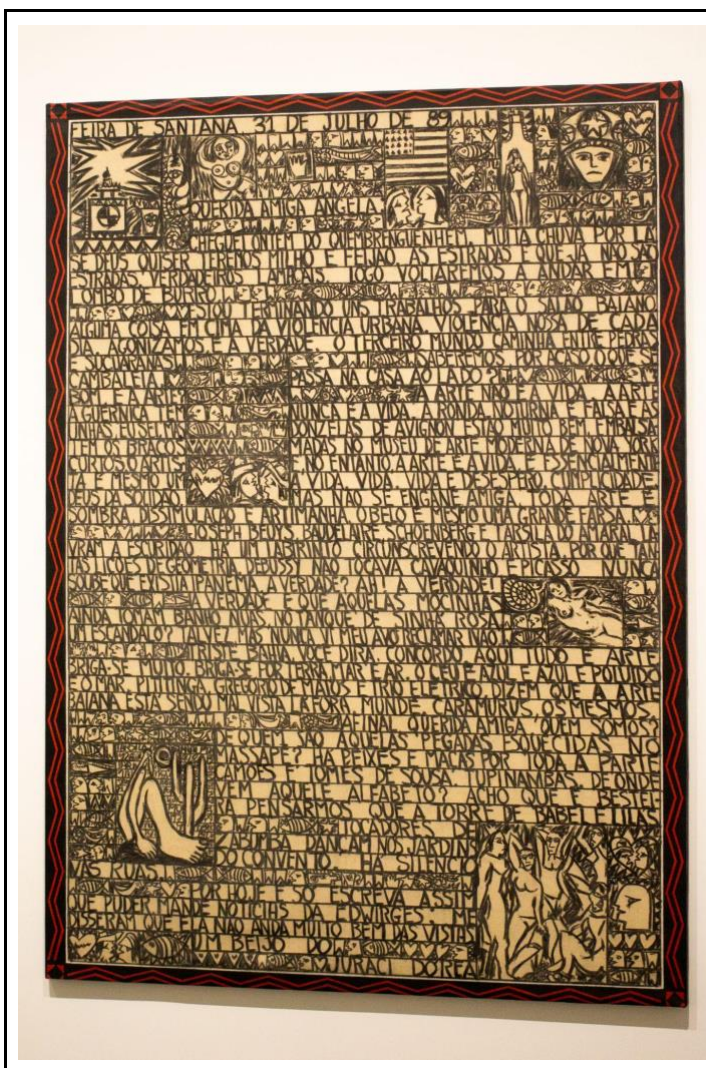 FEIRA DE SANTANA, 31 DE JULHO DE 89
QUERIDA AMIGA ANGELA,
CHEGUEI ONTEM DO QUEMBRENGUENHEM. MUITA CHUVA POR LÁ
SE DEUS QUISER TEREMOS MILHO E FEIJÃO. AS ESTRADAS É QUE JÁ NÃO SÃO
ESTRADAS. VERDADEIROS LAMAÇAIS. LOGO VOLTAREMOS A ANDAR EM
LOMBO DE BURRO.
ESTOU TERMINANDO UNS TRABALHOS PARA O SALÃO BAIANO.
ALGUMA COISA EM CIMA DA VIOLÊNCIA URBANA. VIOLÊNCIA NOSSA DE CADA
DIA. AGONIZAMOS É A VERDADE. O TERCEIRO MUNDO CAMINHA ENTRE PEDRAS
E SUÇUARANAS SABEREMOS POR ACASO O QUE SE
CAMBALEIA PASSA NA CASA AO LADO?
BOM E A ARTE A ARTE NÃO É A VIDA. A ARTE
A GUERNICA TEM NUNCA É A VIDA. A RONDA NOTURNA É FALSA E AS
LINHAS EU SEI MS DONZELAS DE AVIGNON ESTÃO MUITO BEM EMBALSA
TEM OS BRAÇOS MADAS NO MUSEU DE ARTE MODERNA DE NOVA YORK
CURTOS O ARTIS E, NO ENTANTO, A ARTE É A VIDA. É ESSENCIALMENTE
TA É MESMO UM A VIDA. VIDA, VIDA E DESESPERO. CUMPLICIDADE.
DEUS DA SOLIDÃO MAS NÃO SE ENGANE AMIGA. TODA ARTE É
SOMBRA DISSIMULAÇÃO E ARTIMANHA. O BELO É MESMO UMA GRANDE FARSA.
JOSEPH BEUYS, BAUDELAIRE, SCHOENBERG E TARSILA DO AMARAL LA
VRAM A ESCURIDÃO. HÁ UM LABIRINTO CIRCUNSCREVENDO O ARTISTA. POR QUE TAN
TAS LIÇÕES DE GEOMETRIA? DEBUSSY NÃO TOCAVA CAVAQUINHO E PICASSO NUNCA
SOUBE QUE EXISTIA IPANEMA. A VERDADE? AH! A VERDADE!
A VERDADE É QUE AQUELAS MOCINHAS
AINDA TOMAM BANHO NUAS NO TANQUE DE SINHÁ ROSA.
UM ESCÂNDALO? TALVEZ. MAS NUNCA VI MEU AVÔ RECLAMAR NÃO.
TRISTE BAHIA, VOCÊ DIRÁ. CONCORDO. AQUI TUDO É ARTE
BRIGA-SE MUITO. BRIGA-SE POR TERRA, MAR E AR. O CÉU É AZUL E AZUL E POLUÍDO
É O MAR. PITITINGA, GREGÓRIO DE MATOS E TRIO ELÉTRICO. DIZEM QUE A ARTE
BAIANA ESTÁ SENDO MAL VISTA LÁ FORA. MUNDE CARAMURUS, OS MESMOS.
AFINAL QUERIDA AMIGA, QUEM SOMOS?
QUEM SÃO AQUELAS PEGADAS ESQUECIDAS NO
MASSAPÉ? HÁ PEIXES E MAÇÃS POR TODA A PARTE
CAMÕES E TOMÉS DE SOUSA, TUPINAMBÁS. DE ONDE
VEM AQUELE ALFABETO? ACHO QUE É BESTEI
RA PENSARMOS QUE A TORRE DE BABEL
TOCADORES DE
ZABUMBA DANÇAM NOS JARDINS
DO CONVENTO. HÁ SILÊNCIO
NAS RUAS.
POR HOJE É SÓ. ESCREVA ASSIM
QUE PUDER. MANDE NOTÍCIAS DA EDWIRGES. ME
DISSERAM QUE ELA NÃO ANDA MUITO BEM DAS VISTAS
UM BEIJO DO
JURACI DÓREA